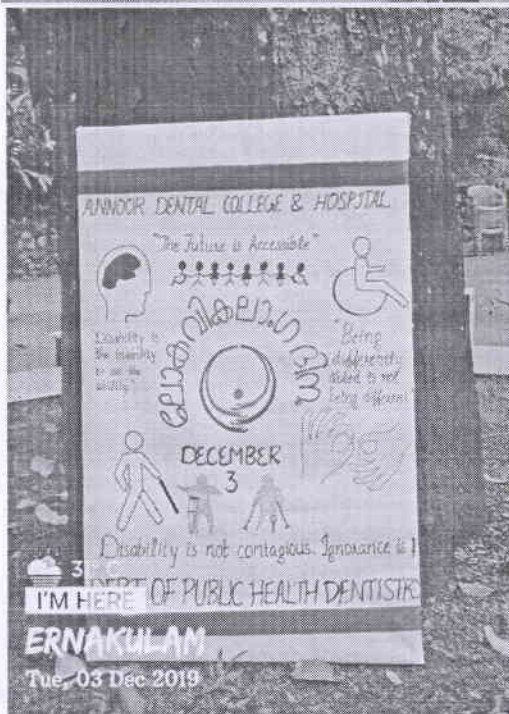 ANNOOR DENTAL COLLEGE & HOSPITAL
"The Future is Accessible"
ലോക വികലാംഗ ദിനം
Disability is
the inability
to see the
ability"
"Being
differently
abled is not
being different"
DECEMBER
3
Disability is not contagious. Ignorance is
DEPT OF PUBLIC HEALTH DENTISTR
I'M HERE
ERNAKULAM
Tue, 03 Dec 2019